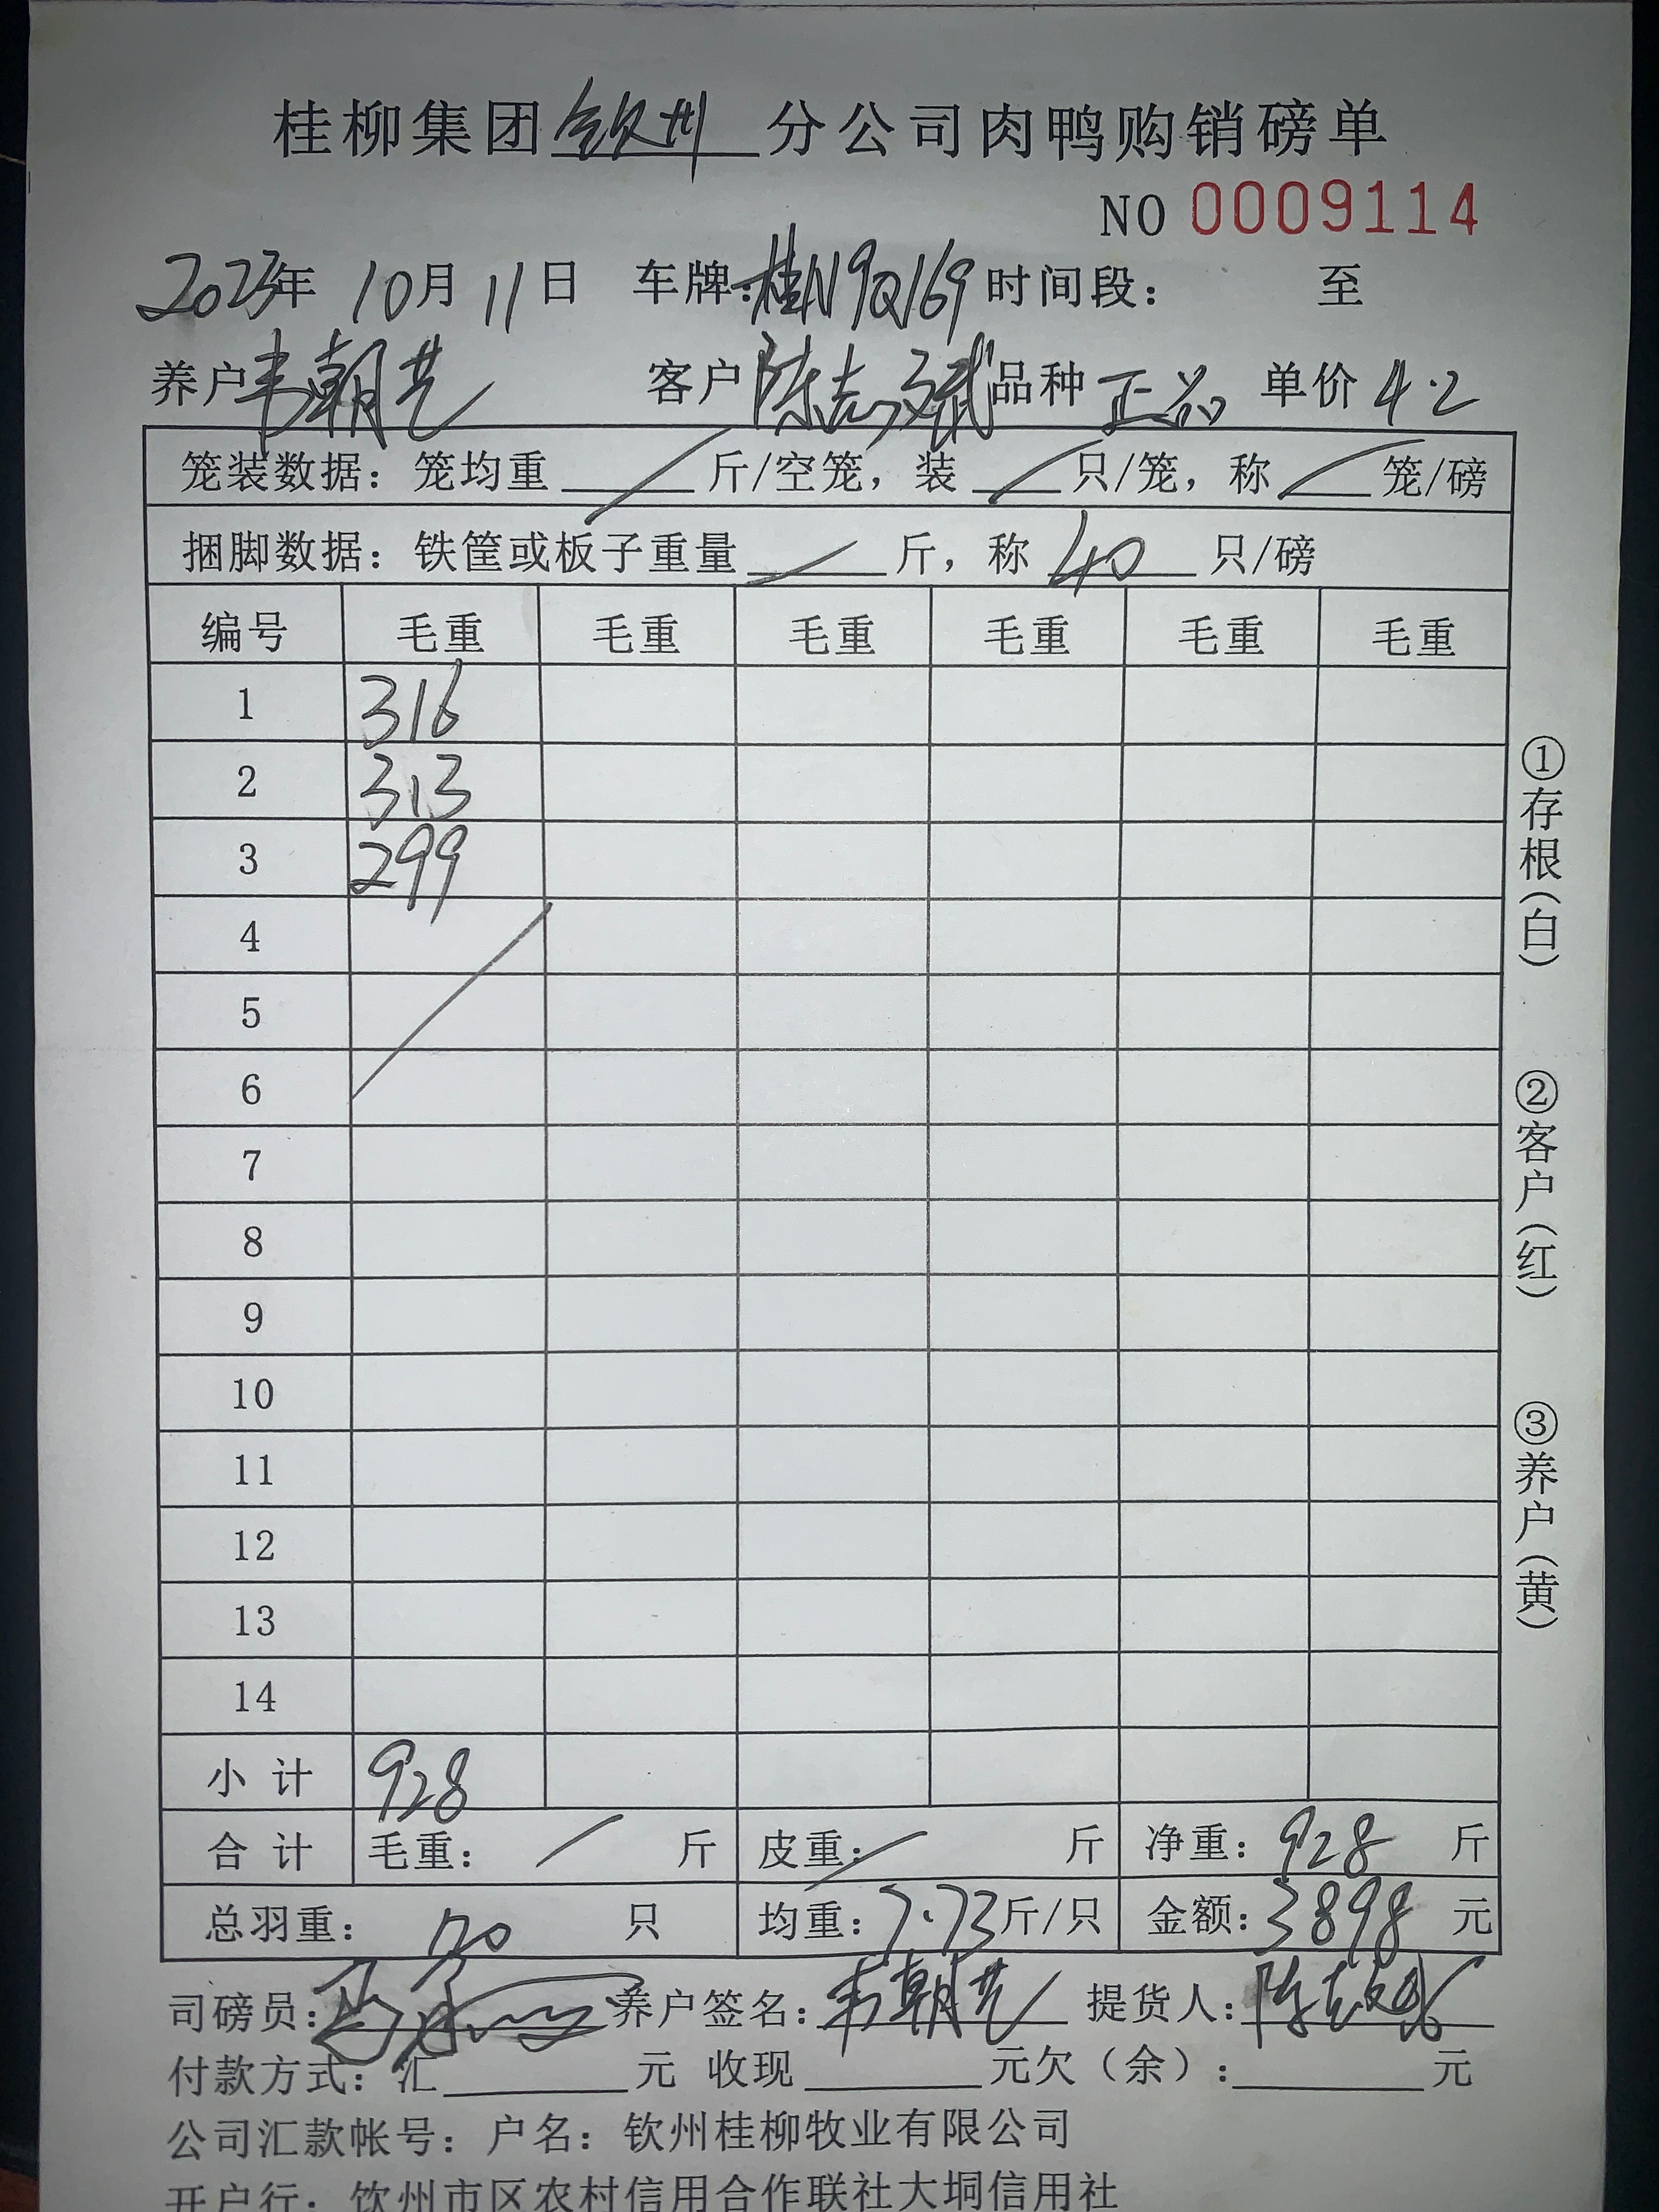 桂柳集团钦州分公司肉鸭购销磅单
NO 0009114
2023年 10月 11日 车牌:桂N9Q169 时间段: 至
养户韦朝艺 客户陈志斌 品种 正品 单价 4.2
笼装数据:笼均重 / 斤/空笼,装 / 只/笼,称 / 笼/磅
捆脚数据:铁筐或板子重量 / 斤,称 40 只/磅
编号 毛重 毛重 毛重 毛重 毛重 毛重
1 316
2 313
3 299
4
5
6
7
8
9
10
11
12
13
14
小计 928
合计 毛重: / 斤 皮重: / 斤 净重: 928 斤
总羽重: 120 只 均重: 7.73斤/只 金额: 3898 元
司磅员: 养户签名: 韦朝艺 提货人: 陈志斌
付款方式:汇 元 收现 元欠(余): 元
公司汇款帐号:户名:钦州桂柳牧业有限公司
开户行:钦州市区农村信用合作联社大垌信用社
①存根(白)
②客户(红)
③养户(黄)